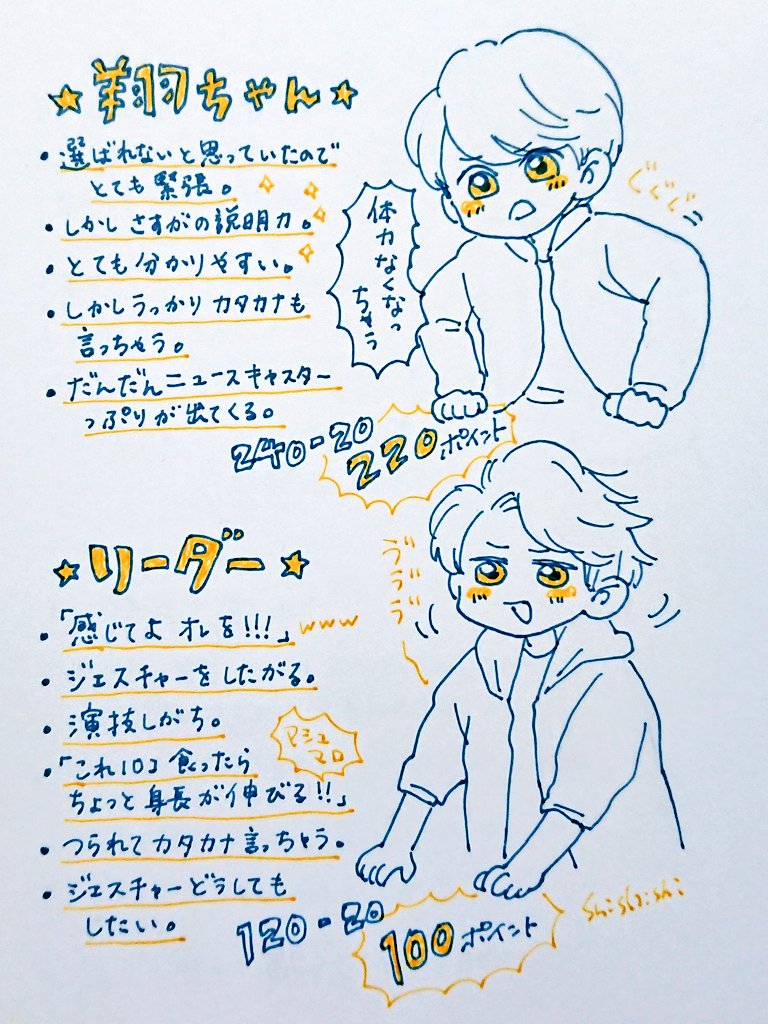 ★翔ちゃん★
・選ばれないと思っていたので
とても緊張。
・しかし さすがの説明力。
・とても分かりやすい。
・しかしうっかり カタカナも
言っちゃう。
・だんだんニュースキャスター
っぷりが出てくる。
体力なくなっ
ちゃう
ぐぐぐ
240-20
220ポイント
★リーダー★
・「感じてよ オレを!!!」www
・ジェスチャーをしたがる。
・演技しがち。
・「これ10コ食ったら
ちょっと身長が伸びる!!」
マシュ
マロ
・つられてカタカナ言っちゃう。
・ジェスチャーどうしても
したい。
120-20
100ポイント
ゔゔゔ
shishishi